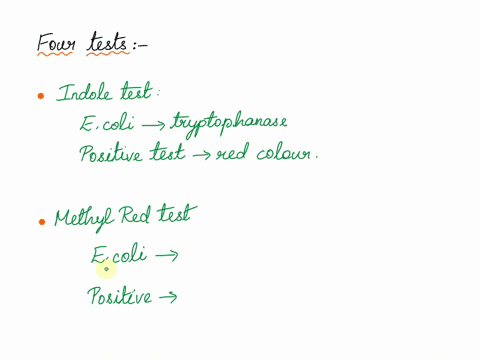 Four tests:-
• Indole test:
E.coli → tryptophanase
Positive test → red colour.
• Methyl Red test
E.coli →
Positive →